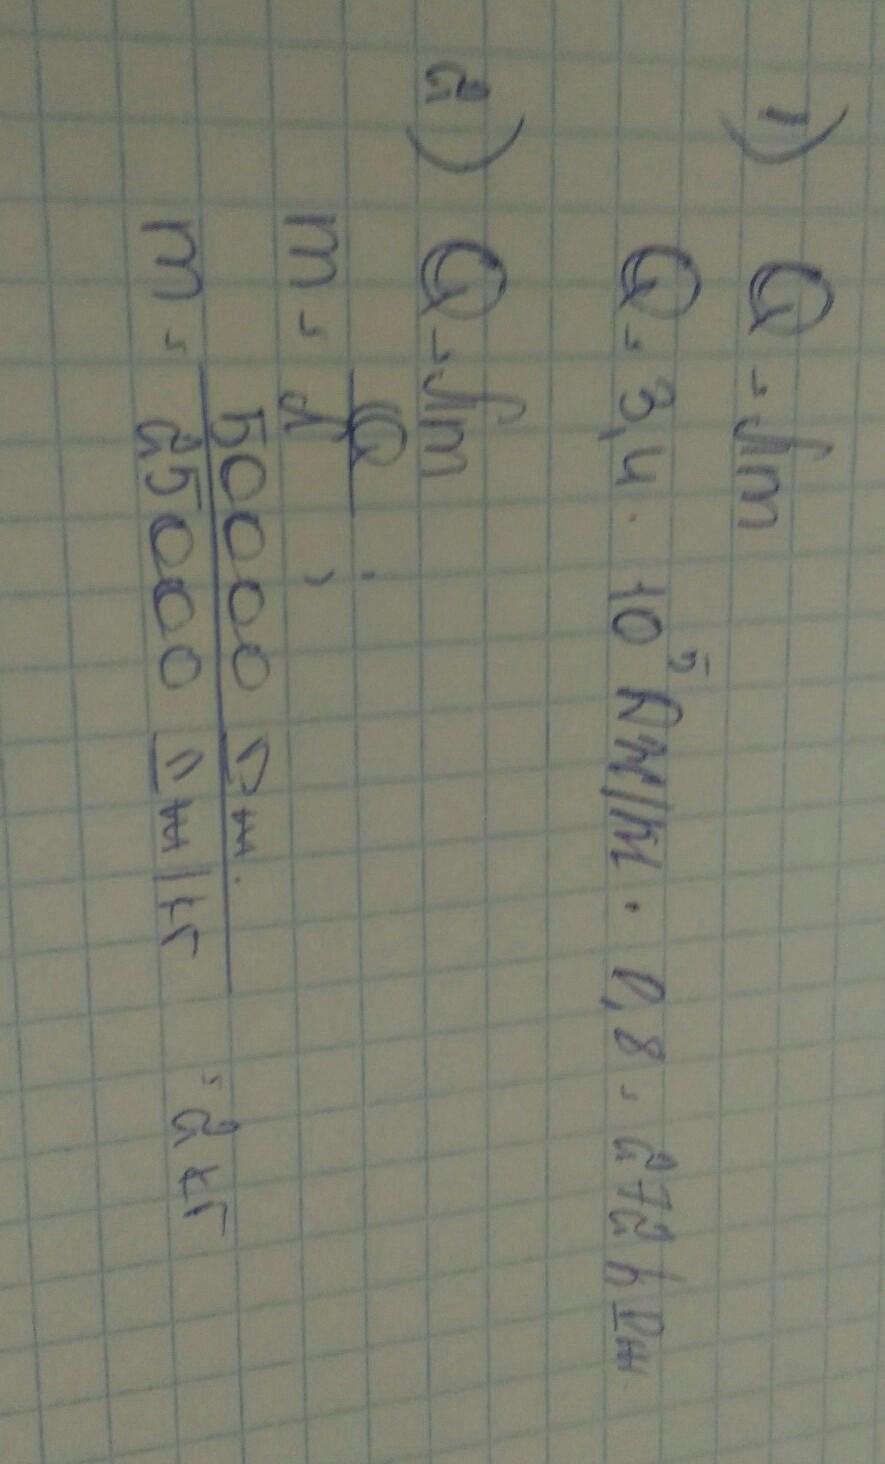 1) Q = λm
Q = 3,4 · 10⁵ Дж/кг · 0,8 = 272 кДж
2) Q = λm
m = Q/λ ;
m = 50000 Дж. / 25000 Дж/кг = 2 кг